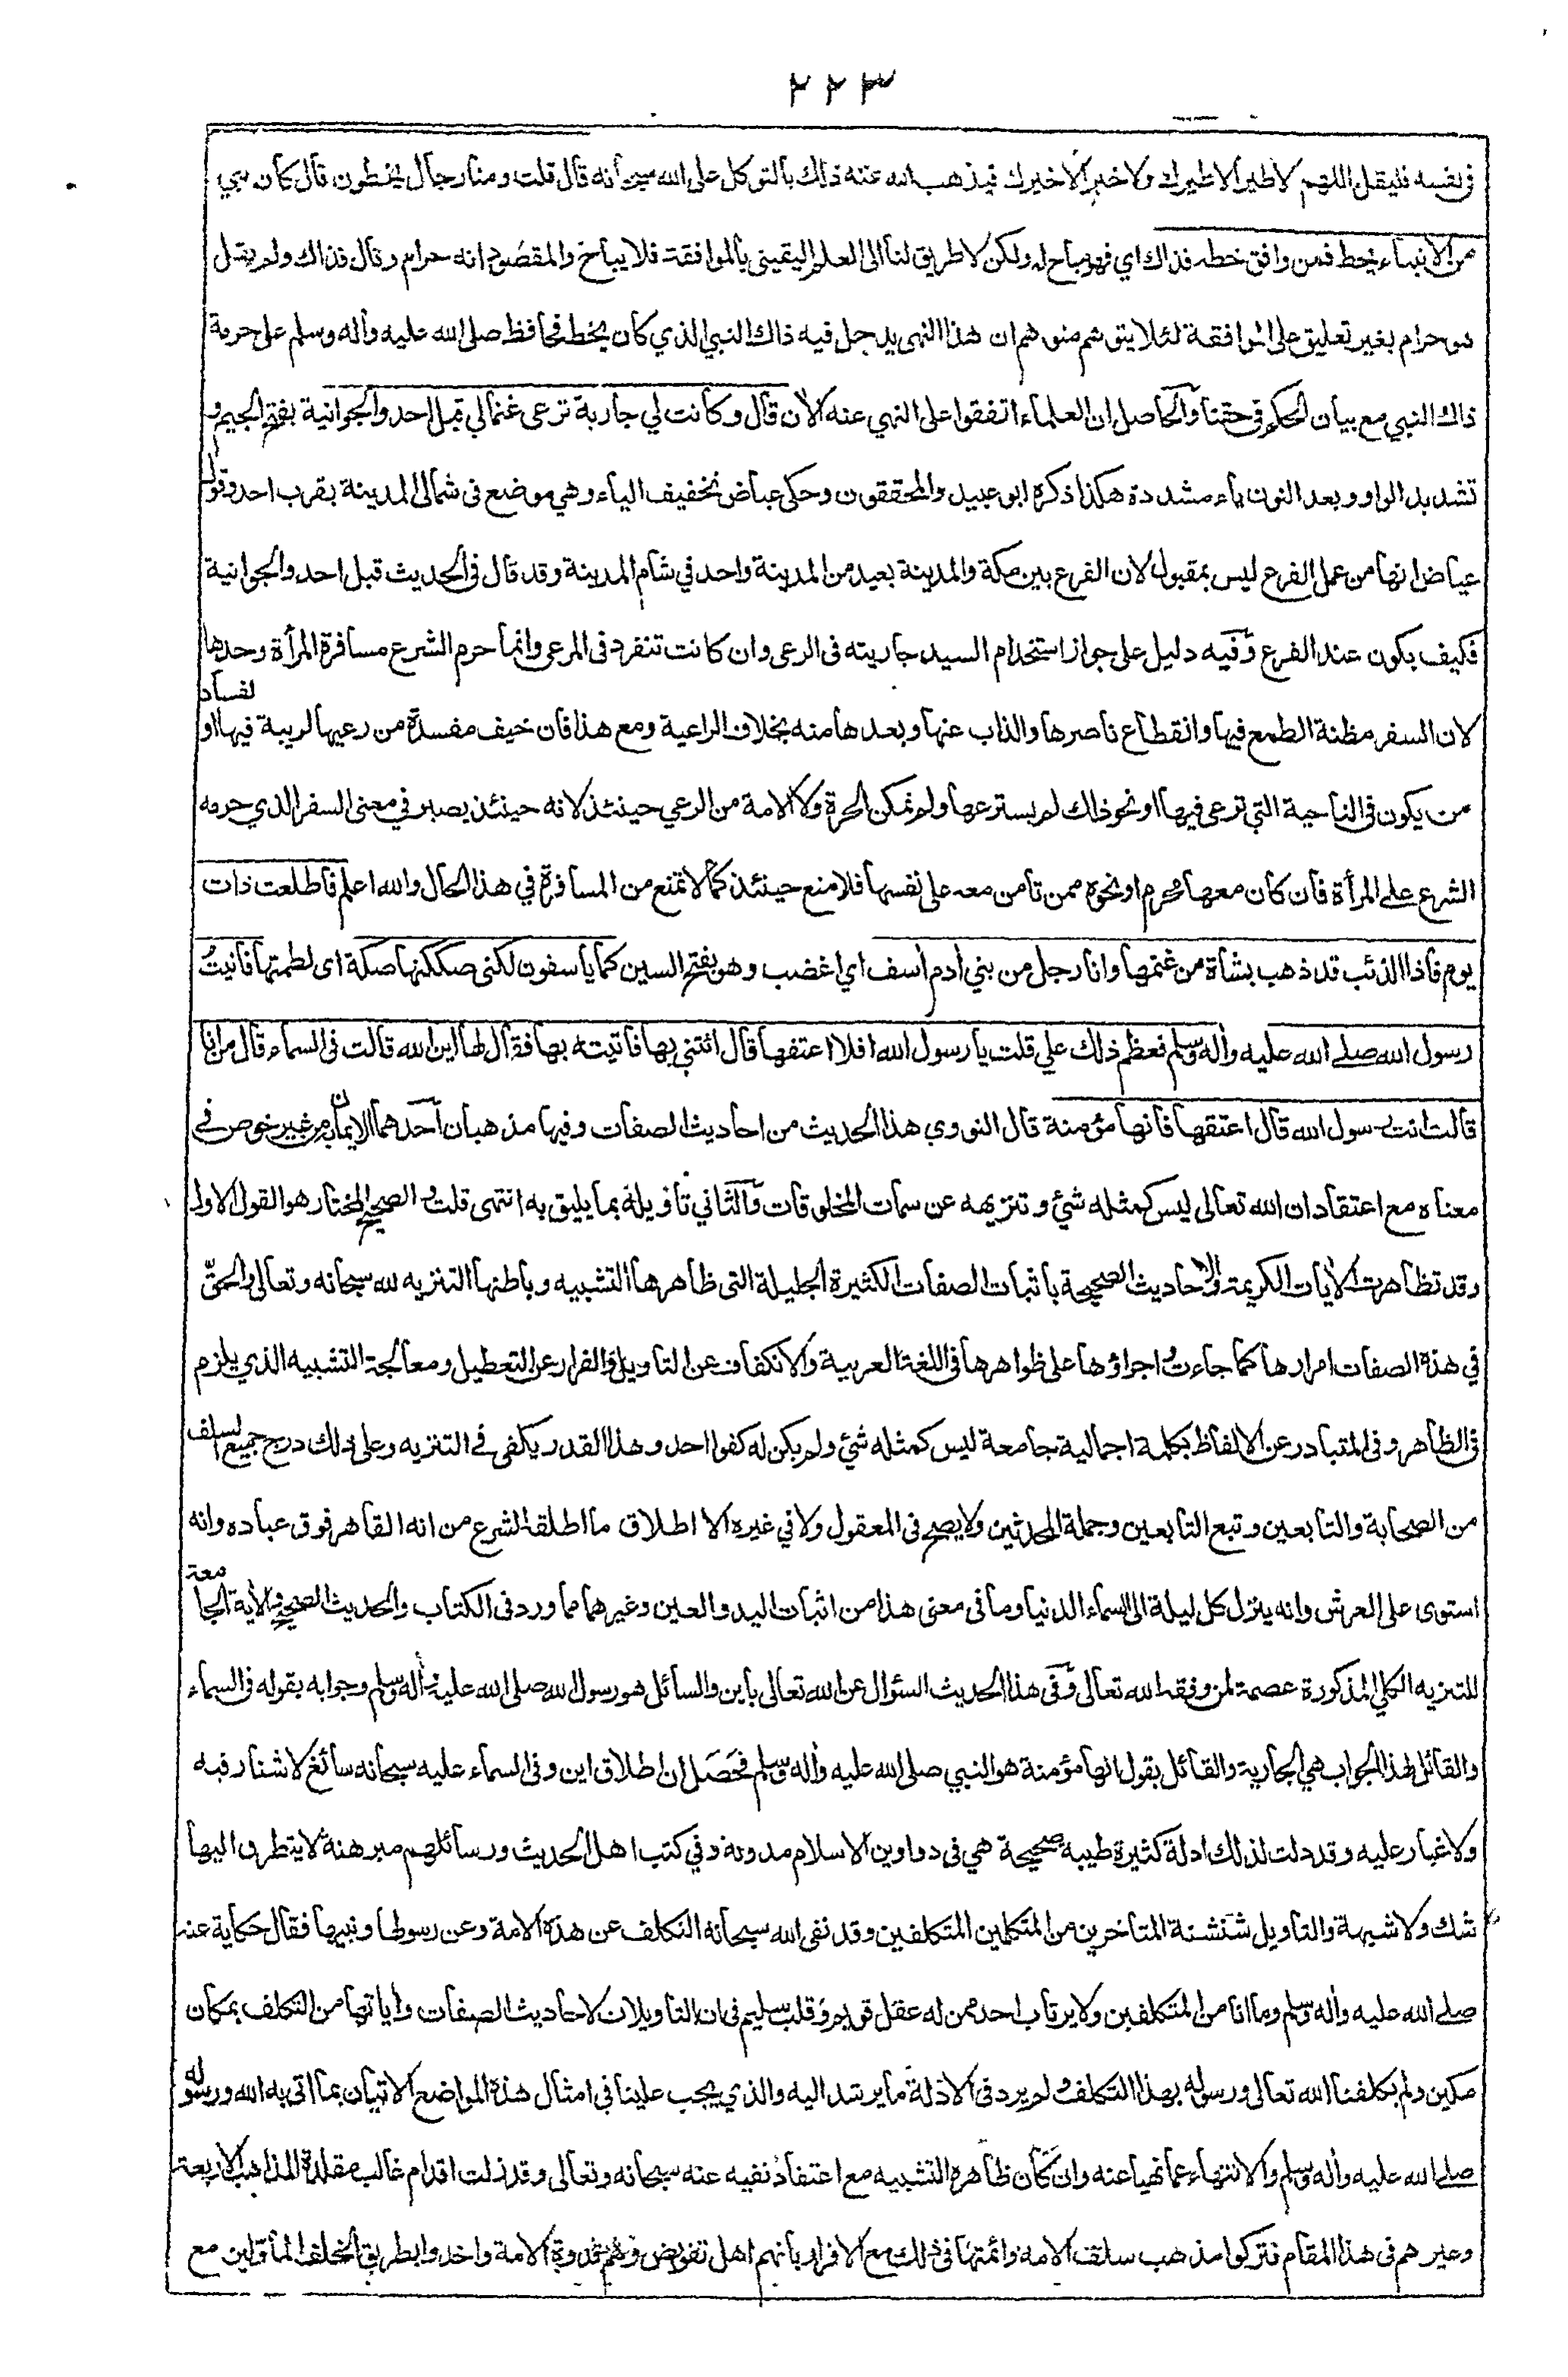 ٢٢٣
فى نفسه فليقل اللهم لا طير الا طيرك ولا خير الا خيرك فيذهب الله عنه ذلك بالتوكل على الله سبحانه قال قلت ومنا رجال يخطون قال كان نبي
من الانبياء يخط فمن وافق خطه فذاك اي فهو مباح له ولكن لا طريق لنا الى العلم اليقينى بالموافقة فلا يباح والمقصود انه حرام وقال فذاك ولم يقل
هو حرام بغير تعليق على الموافقة لئلا يتوهم متوهم ان هذا النهى يدخل فيه ذاك النبي الذي كان يخط فحافظ صلى الله عليه واله وسلم على حرمة
ذاك النبي مع بيان الحكم فى حقنا والحاصل ان العلماء اتفقوا على النهي عنه الان قال وكانت لي جارية ترعى غنما لي قبل احد والجوانية بفتح الجيم و
تشديد الواو وبعد النون ياء مشددة هكذا ذكره ابو عبيد والمحققون وحكى عياض تخفيف الياء وهي موضع فى شمالى المدينة بقرب احد وقول
عياض انها من عمل الفرع ليس بمقبول لان الفرع بين مكة والمدينة بعيد من المدينة واحد في شام المدينة وقد قال فى الحديث قبل احد والجوانية
فكيف يكون عند الفرع وفيه دليل على جواز استخدام السيد جاريته فى الرعى وان كانت تنفرد فى المرعى وانما حرم الشرع مسافرة المرأة وحدها
لان السفر مظنة الطمع فيها وانقطاع ناصرها والذاب عنها وبعدها منه بخلاف الراعية ومع هذا فان خيف مفسدة من رعيها لريبة فيها او لفساد
من يكون فى الناحية التي ترعى فيها او نحو ذلك لم يسترعها ولم تمكن الحرة ولا الامة من الرعي حينئذ لانه حينئذ يصير في معنى السفر الذي حرمه
الشرع على المرأة فان كان معها محرم او نحوه ممن تامن معه على نفسها فلا منع حينئذ كما لا تمنع من المسافرة في هذا الحال والله اعلم فاطلعت ذات
يوم فاذا الذئب قد ذهب بشاة من غنمها وانا رجل من بني ادم اسف اي اغضب وهو بفتح السين كما ياسفون لكنى صككتها صكة اى لطمتها فاتيت
رسول الله صلے الله عليه واله وسلم فعظم ذلك علي قلت يا رسول الله افلا اعتقها قال ائتني بها فاتيته بها فقال لها اين الله قالت فى السماء قال من انا
قالت انت رسول الله قال اعتقها فانها مؤمنة قال النووي هذا الحديث من احاديث الصفات وفيها مذهبان احدهما الايمان به من غير خوض فے
معناه مع اعتقاد ان الله تعالى ليس كمثله شئ وتنزيهه عن سمات المخلوقات والثاني تأويله بما يليق به انتهى قلت والصحيح المختار هو القول الاول
وقد تظاهرت الايات الكريمة والاحاديث الصحيحة باثبات الصفات الكثيرة الجليلة التى ظاهرها التشبيه وباطنها التنزيه لله سبحانه وتعالى والحق
في هذه الصفات امرارها كما جاءت واجراؤها على ظواهرها فى اللغة العربية والانكفاف عن التاويل والفرار عن التعطيل ومعالجة التشبيه الذي يلزم
فى الظاهر وفى المتبادر عن الالفاظ بكلمة اجمالية جامعة ليس كمثله شئ ولم يكن له كفوا احد وهذا القدر يكفى فے التنزيه وعلى ذلك درج جميع السلف
من الصحابة والتابعين وتبع التابعين وجملة المحدثين ولا يصح فى المعقول ولا في غيره الا اطلاق ما اطلقه الشرع من انه القاهر فوق عباده وانه
استوى على العرش وانه ينزل كل ليلة الى السماء الدنيا وما فى معنى هذا من اثبات اليد والعين وغيرهما مما ورد فى الكتاب والحديث الصحيح والاية الجامعة
للتنزيه الكلي المذكورة عصمة لمن وفقه الله تعالى وفى هذا الحديث السؤال عن الله تعالى باين والسائل هو رسول الله صلى الله عليه واله وسلم وجوابه بقوله فى السماء
والقائل لهذا الجواب هي الجارية والقائل بقول انها مؤمنة هو النبي صلى الله عليه واله وسلم فحصل ان اطلاق اين وفى السماء عليه سبحانه سائغ لا شنار فيه
ولا غبار عليه وقد دلت لذلك ادلة كثيرة طيبة صحيحة هي فى دواوين الاسلام مدونة وفي كتب اهل الحديث ورسائلهم مبرهنة لا يتطرق اليها
شك ولا شبهة والتاويل شنشنة المتاخرين من المتكلمين المتكلفين وقد نفى الله سبحانه التكلف عن هذه الامة وعن رسولها ونبيها فقال حكاية عنه
صلے الله عليه واله وسلم وما انا من المتكلفين ولا يرتاب احد ممن له عقل قويم وقلب سليم فى ان التاويلات لاحاديث الصفات واياتها من التكلف بمكان
مكين ولم يكلفنا الله تعالى ورسوله بهذا التكلف ولم يرد فى الادلة ما يرشد اليه والذي يجب علينا في امثال هذه المواضع الاتيان بما اتى به الله ورسوله
صلے الله عليه واله وسلم والانتهاء عما نهيا عنه وان كان ظاهره التشبيه مع اعتقاد نفيه عنه سبحانه وتعالى وقد زلت اقدام غالب مقلدة المذاهب الاربعة
وغيرهم فى هذا المقام فتركوا مذهب سلف الامة وائمتها فى ذلك مع الاقرار بانهم اهل تفويض وهم قدوة الامة واخذوا بطريق الخلف المأولين مع